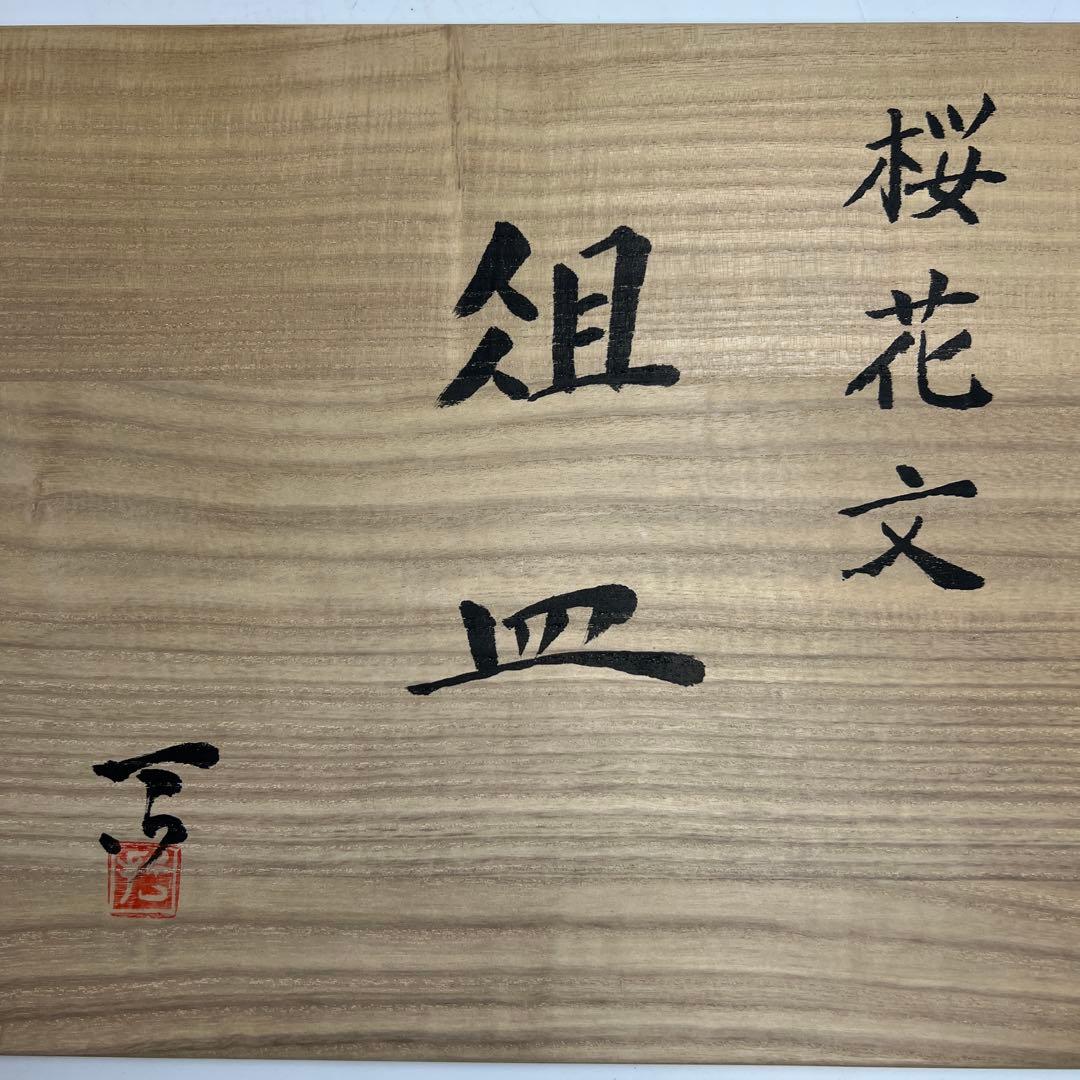 桜花文
俎皿